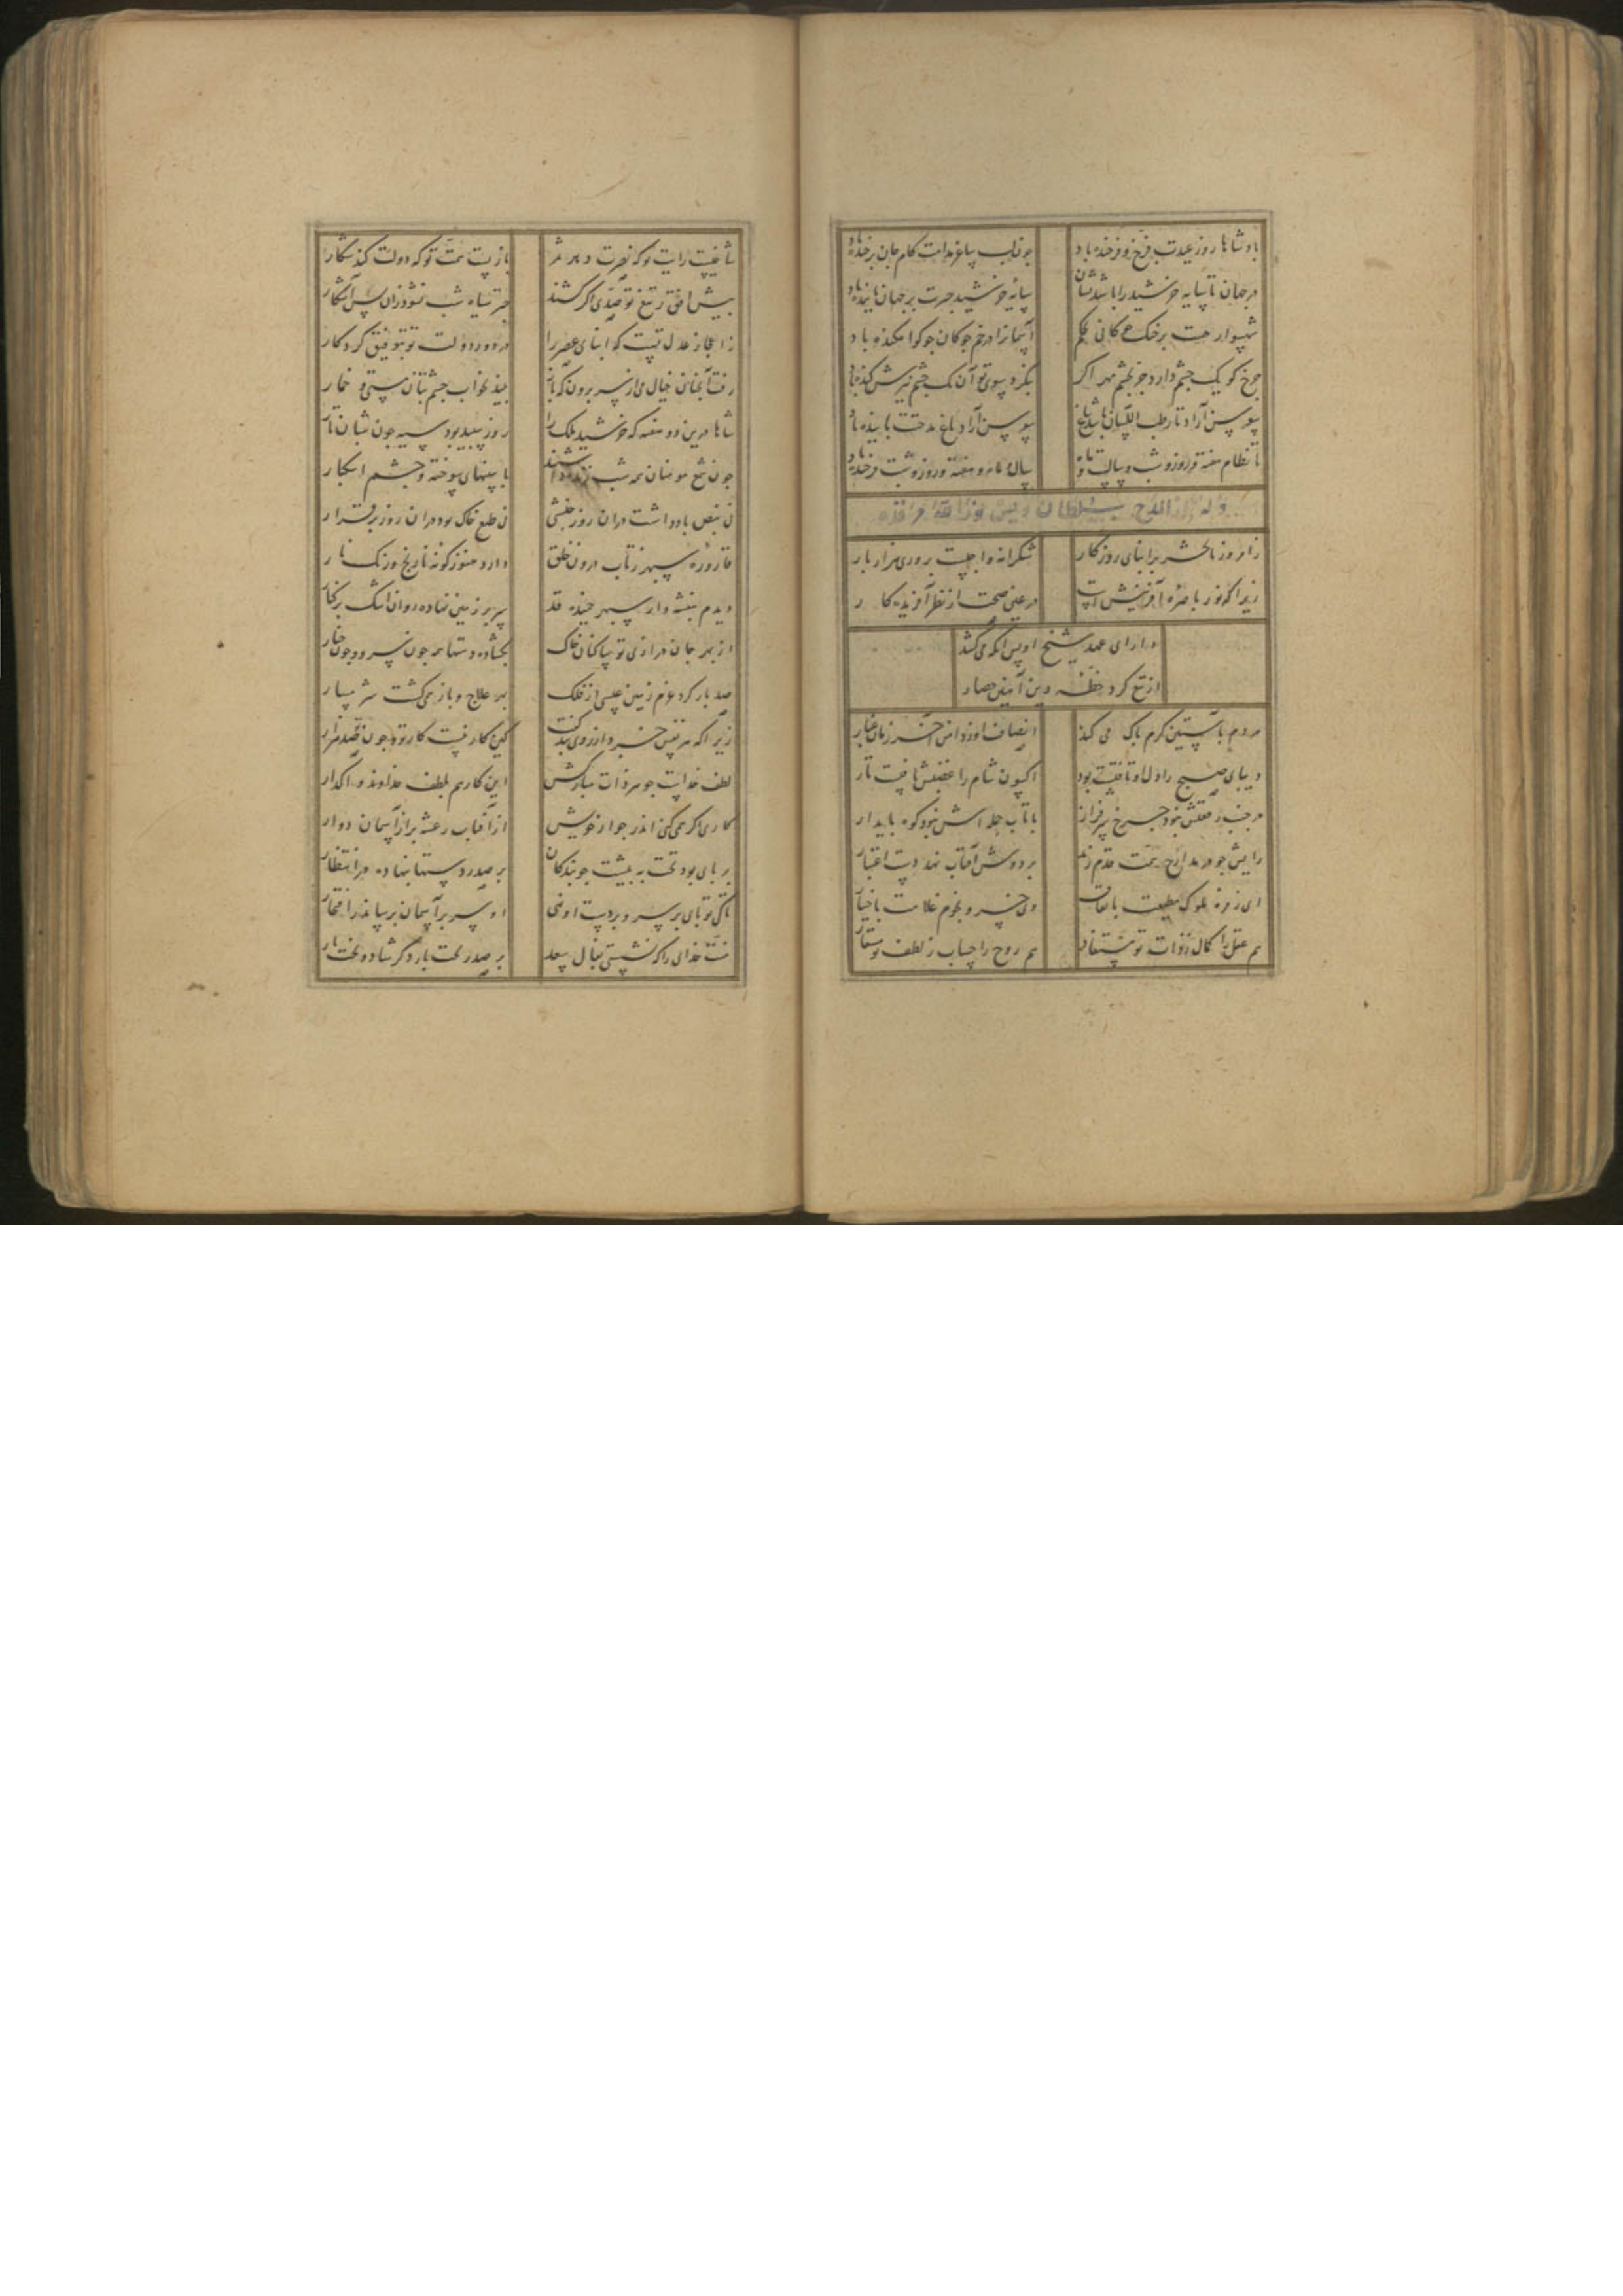 پادشاها روز عیدت فرخ و فرخنده باد
چون لب ساغر مدامت کام جان پرخنده باد
در جهان تا سایه خورشید را باشد نشان
سایه خورشید چترت بر جهان پاینده باد
شهسوار همتت بر خنک
آسمانرا در خم چوکان چو کو افکنده باد
چرخ کو یک چشم دارد جز بچشم مهر اکر
بنکرد سوی تو آن یک چشم نیزش کنده باد
سوسن آزاد تا رطب اللسان باشد بباغ
سوسن آزاد باغ مدحتت را بنده باد
تا نظام هفته و روز و شب و سالست و ماه
سال و ماه و هفته و روز و شبت فرخنده باد
وله المدح سلطان اویس نورالله مرقده
ز امروز تا بحشر بر ابنای روزکار
شکرانه واجبست بروزی هزار بار
زیرا که نور باصره آفرینش است
در عین صحت از نظر آفریدکار
دارای عهد شیخ اویس انکه می‌کشد
از تیغ کرد خطه دین آهنین حصار
مردم بآستین کرم پاک می کند
انصاف او ز دامن آخر زمان غبار
دیبای صبح را دل او تافتست پود
اکسون شام را غضبش تافتست تار
در جنب رفعتش نبود چرخ سرفراز
با تاب حمله اش نبود کوه پایدار
رایش چو در مدارج همت قدم زند
بر دوش آفتاب نهد دست اعتبار
ای زمره ملوک مطیعت باتفاق
وی خسرو نجوم غلامت باختیار
هم عقل را کمال ز ذات تو مستفاد
هم روح را حساب ز لطف تو مستعار
شاخیست رایت تو که نصرت دهد ثمر
بازیست همت تو که دولت کند شکار
پیش افق ز تیغ تو سدی اکر کشند
چتر سیاه شب نشود زان پس آشکار
ز اعجاز عدل تست که ابنای عصر را
در دور دولت تو بتوفیق کردکار
رفت آنچنان خیال می از سر برون که باز
بیند بخواب چشم بتان مستی و خمار
شاها درین دو هفته که خورشید ملک را
روز سپید بود سیه چون شبان تار
چون شمع مومنان همه شب زنده
با سینهای سوخته و چشم اشکبار
نی نبض باد داشت دران روز جنبشی
نی طبع خاک بود دران روز برقرار
قاروره سپهر ز تاب درون خلق
دارد هنوز کونه نارنج و رنک نار
دیدم بنفشه وار سپهر خمیده قد
سر بر زمین نهاده روان اشک بر کنار
از بهر جان درازی تو ساکنان خاک
بکشاده دستها همه چون سرو و چون چنار
صد بار کرد عزم زمین عیسی از فلک
بهر علاج و باز همی کشت شرمسار
زیرا که هر نفس خرد از روی بند کفت
کین کار نیست کار تو و چون تو صد هزار
لطف خداست جوهر ذات مبارکش
این کار هم بلطف خداوند واکذار
کاری اکر همی کنی اندر جوار خویش
از آفتاب رعشه بر از آسمان دوار
بر پای بود تخت به پیشت چو بندکان
بر صدر دستها بنهاده در انتظار
تا کی تو پای بر سر و بر دست او نهی
او سر بر آسمان برساند ز افتخار
منت خدای را که نشستی بفال سعد
بر صدر تخت بار دکر شاد و بختیار